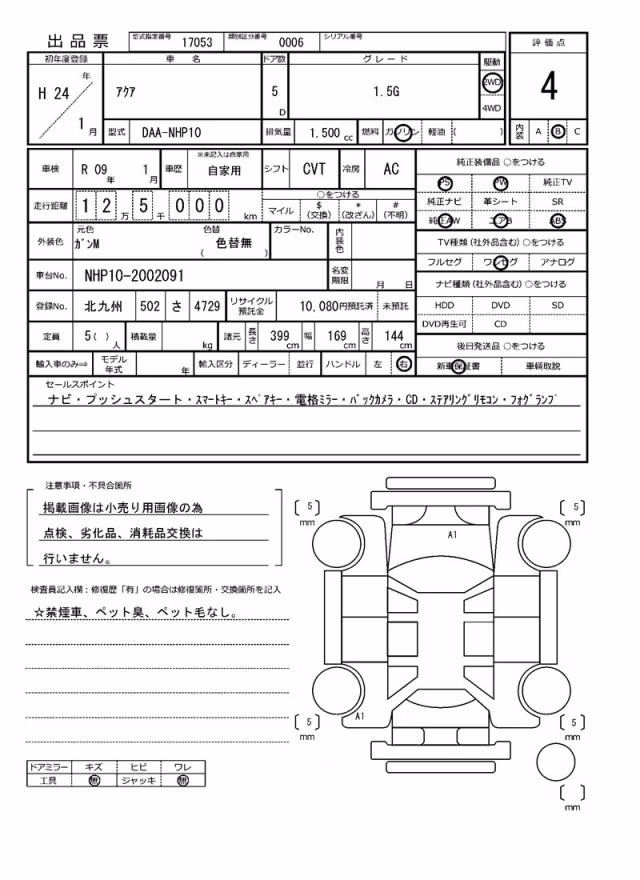 出品票 型式指定番号 17053 類別区分番号 0006 シリアル番号
初年度登録 車名 ドア数 グレード 駆動 評価点
H 24 年 1 月 アクア 5 D 1.5G 2WD 4WD 4
型式 DAA-NHP10 排気量 1.500 cc 燃料 ガソリン 軽油 ( ) 内装 A B C
車検 R 09 年 1 月 車歴 ※未記入は自家用 自家用 シフト CVT 冷房 AC
走行距離 1 2 万 5 千 0 0 0 km ○をつける
マイル $ (交換) * (改ざん) # (不明)
外装色 元色 ガンM 色替 ( 色替無 ) カラーNo. 内装色
車台No. NHP10-2002091 名変期限 月 日
登録No. 北九州 502 さ 4729 リサイクル預託金 10,080円預託済 未預託
定員 5( ) 人 積載量 kg 諸元 長さ 399 cm 幅 169 cm 高さ 144 cm
輸入車のみ⇒ モデル年式 年 輸入区分 ディーラー 並行 ハンドル 左 右
純正装備品 ○をつける
PS PW 純正TV
純正ナビ 革シート SR
純正AW エアB ABS
TV種類 (社外品含む) ○をつける
フルセグ ワンセグ アナログ
ナビ種類 (社外品含む) ○をつける
HDD DVD SD
DVD再生可 CD
後日発送品 ○をつける
新車保証書 車輌取説
セールスポイント
ナビ・プッシュスタート・スマートキー・スペアキー・電格ミラー・バックカメラ・CD・ステアリングリモコン・フォグランプ
注意事項・不具合箇所
掲載画像は小売り用画像の為
点検、劣化品、消耗品交換は
行いません。
検査員記入欄：修復歴「有」の場合は修復箇所・交換箇所を記入
☆禁煙車、ペット臭、ペット毛なし。
ドアミラー キズ ヒビ ワレ
工具 無 ジャッキ 無
〔 5 〕 mm 〔 5 〕 mm
A1
A1
〔 5 〕 mm 〔 5 〕 mm
〔 〕 mm